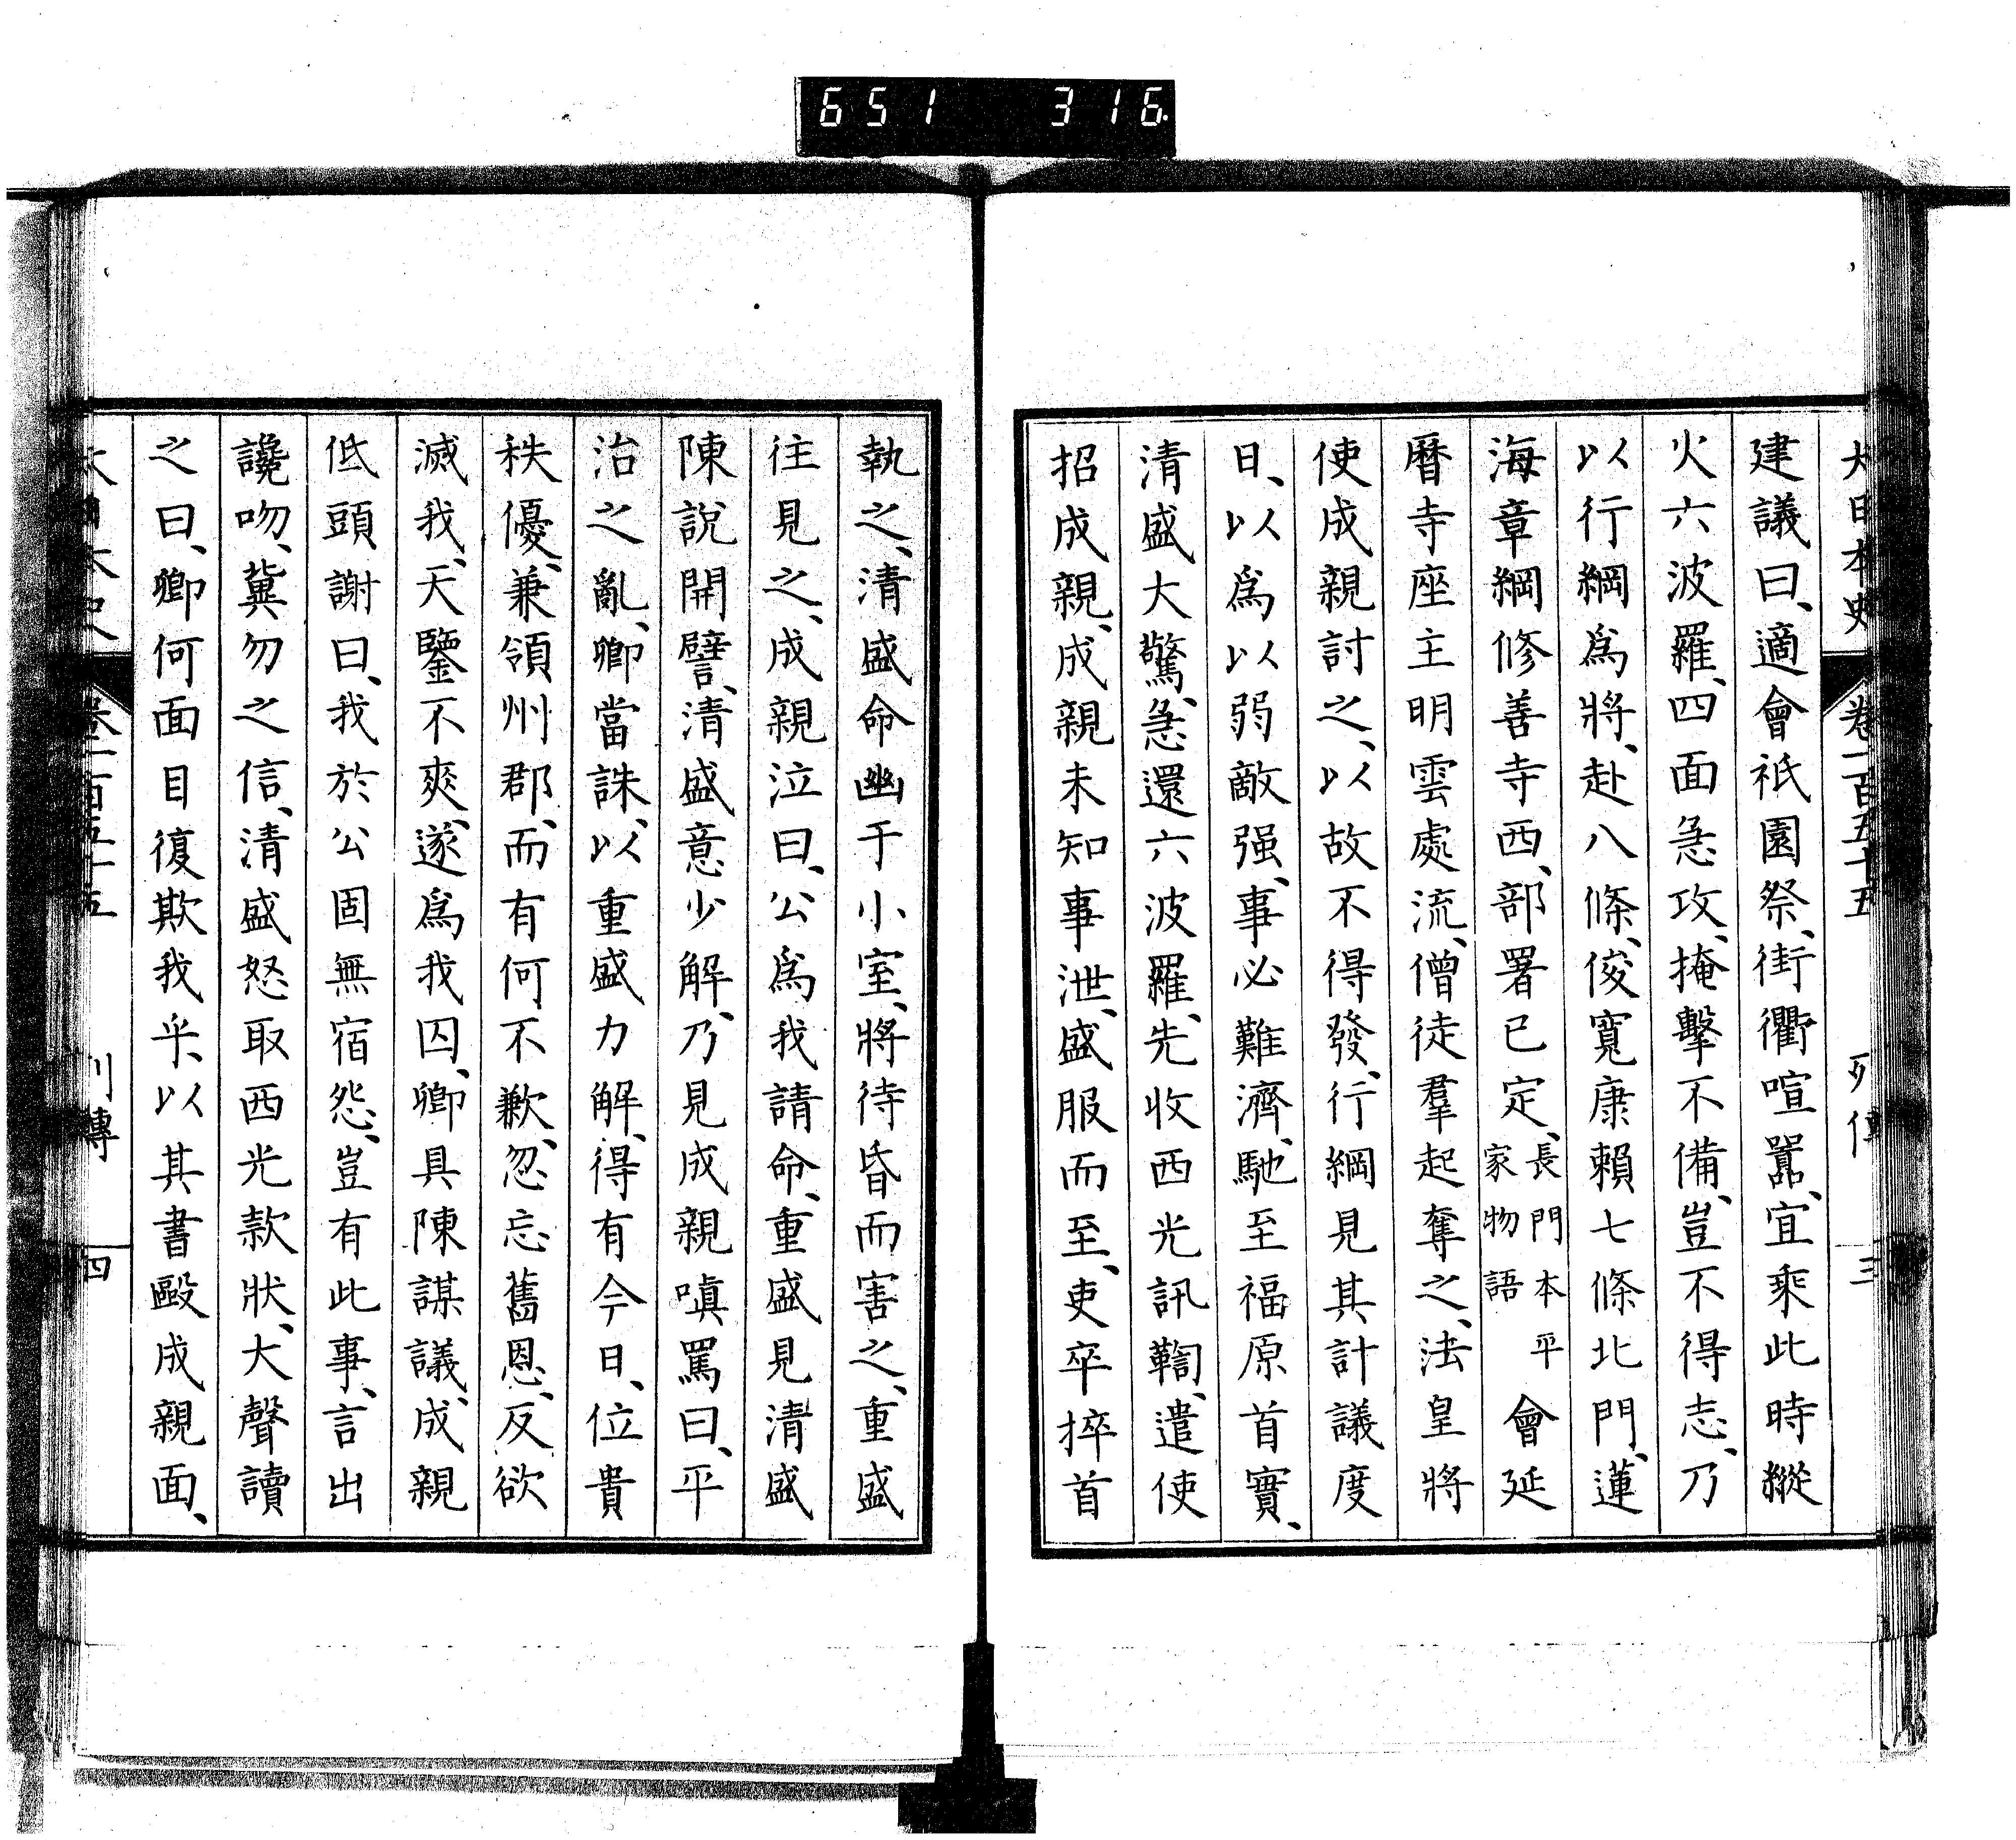 651 316.
大日本史 卷一百五十五 列傳 三
建議曰、適會祇園祭、街衢喧囂、宜乘此時縱
火六波羅、四面急攻、掩擊不備、豈不得志、乃
以行綱爲將、赴八條、俊寬康賴七條北門、蓮
海章綱修善寺西、部署已定、長門本平家物語會延
曆寺座主明雲處流、僧徒羣起奪之、法皇將
使成親討之、以故不得發、行綱見其計議度
日、以爲以弱敵强、事必難濟、馳至福原首實、
清盛大驚、急還六波羅、先收西光訊鞫、遣使
招成親、成親未知事泄、盛服而至、吏卒捽首
執之、清盛命幽于小室、將待昏而害之、重盛
往見之、成親泣曰、公爲我請命、重盛見清盛
陳說開譬、清盛意少解、乃見成親嗔罵曰、平
治之亂、卿當誅、以重盛力解、得有今日、位貴
秩優、兼領州郡、而有何不歉、忽忘舊恩、反欲
滅我、天鑒不爽、遂爲我囚、卿具陳謀議、成親
低頭謝曰、我於公固無宿怨、豈有此事、言出
讒吻、冀勿之信、清盛怒取西光款狀、大聲讀
之曰、卿何面目復欺我乎、以其書毆成親面、
大日本史 卷一百五十五 列傳 四